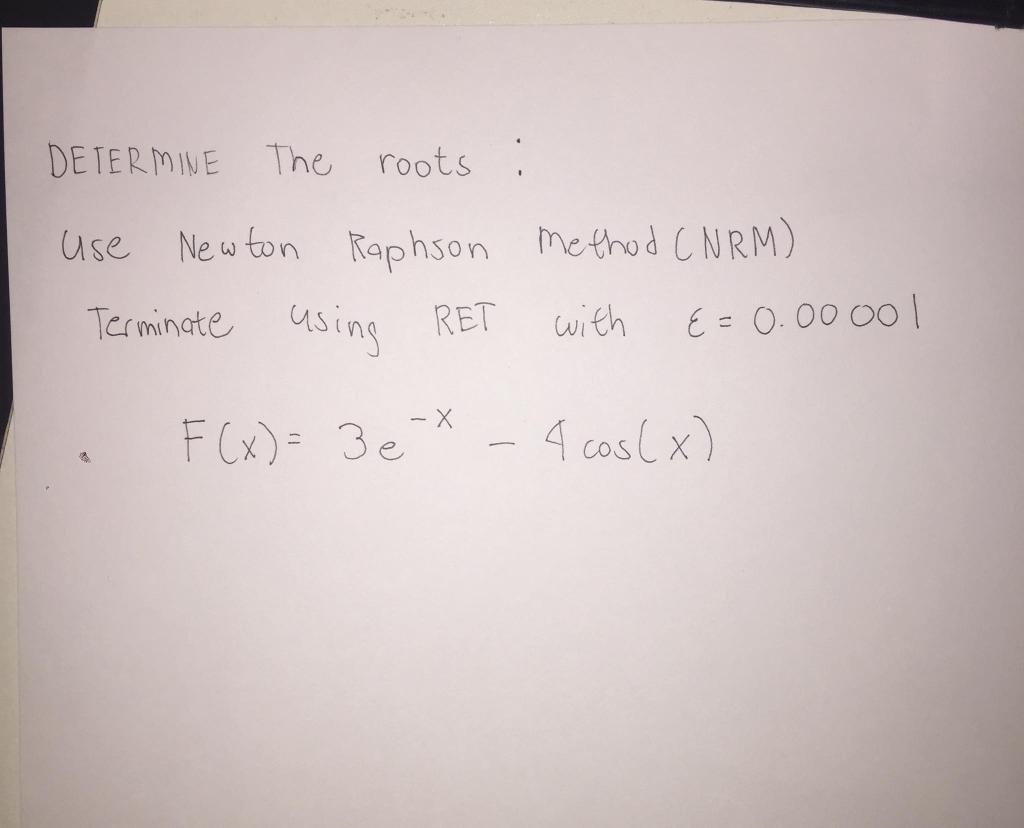 DETERMINE The roots :
Use Newton Raphson Method (NRM)
Terminate using RET with ε = 0.00001
F(x) = 3e^{-x} - 4 cos(x)